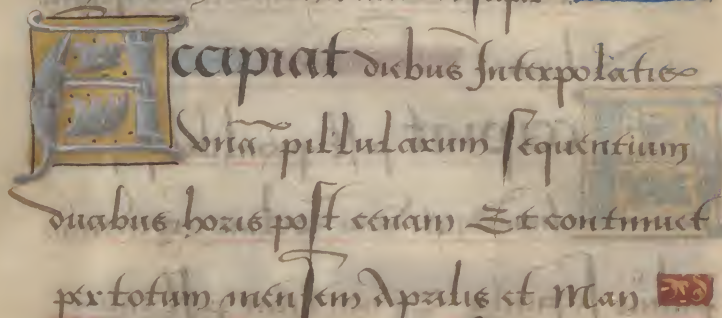 Accipiat diebus Interpolatis
vnã pillularum sequentium
duabus horis post cenam Et continuet
per totum mensem Aprilis et Maii